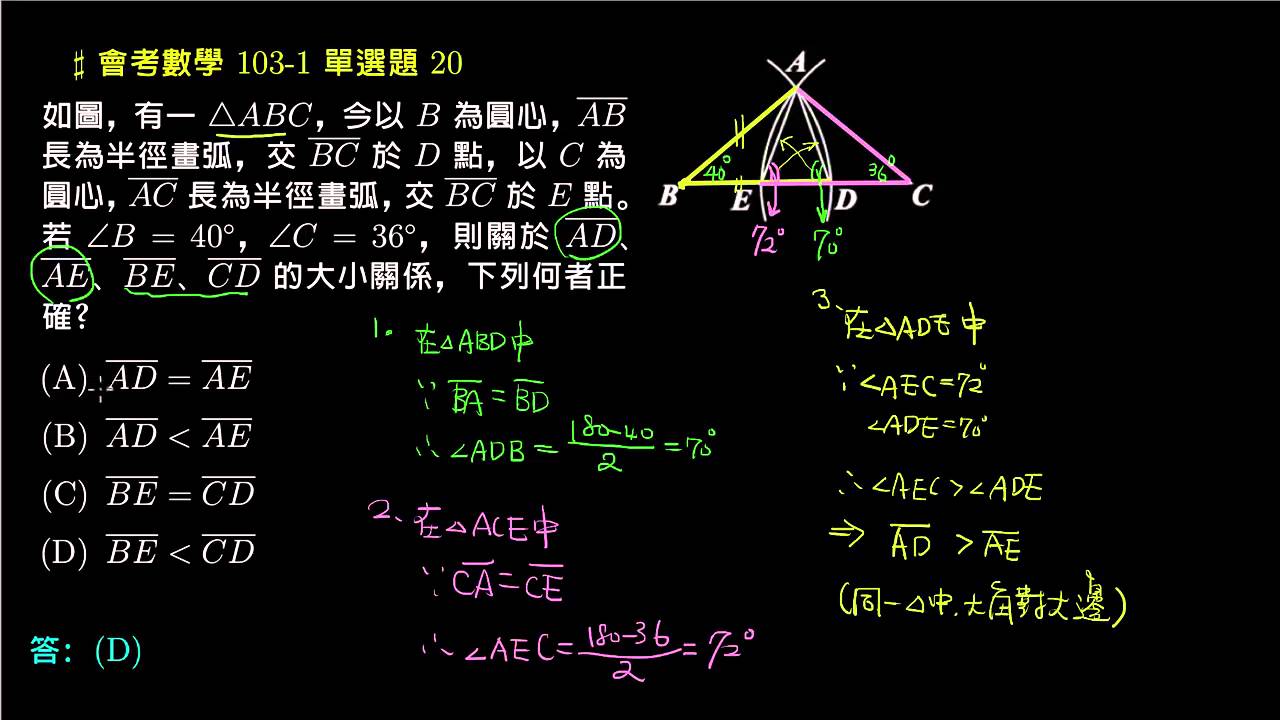 ♯ 會考數學 103-1 單選題 20
如圖，有一 △ABC，今以 B 為圓心，AB
長為半徑畫弧，交 BC 於 D 點，以 C 為
圓心，AC 長為半徑畫弧，交 BC 於 E 點。
若 ∠B = 40°，∠C = 36°，則關於 AD、
AE、BE、CD 的大小關係，下列何者正
確？
(A) AD = AE
(B) AD < AE
(C) BE = CD
(D) BE < CD
答：(D)
A
40°
36°
B
E
D
C
72°
70°
1.
在△ABD中
∵ BA = BD
∴ ∠ADB = 180-40/2 = 70°
2、
在△ACE中
∵ CA = CE
∴ ∠AEC = 180-36/2 = 72°
3、
在△ADE中
∵ ∠AEC = 72°
∠ADE = 70°
∴ ∠AEC > ∠ADE
⇒ AD > AE
(同一△中，大角對大邊)